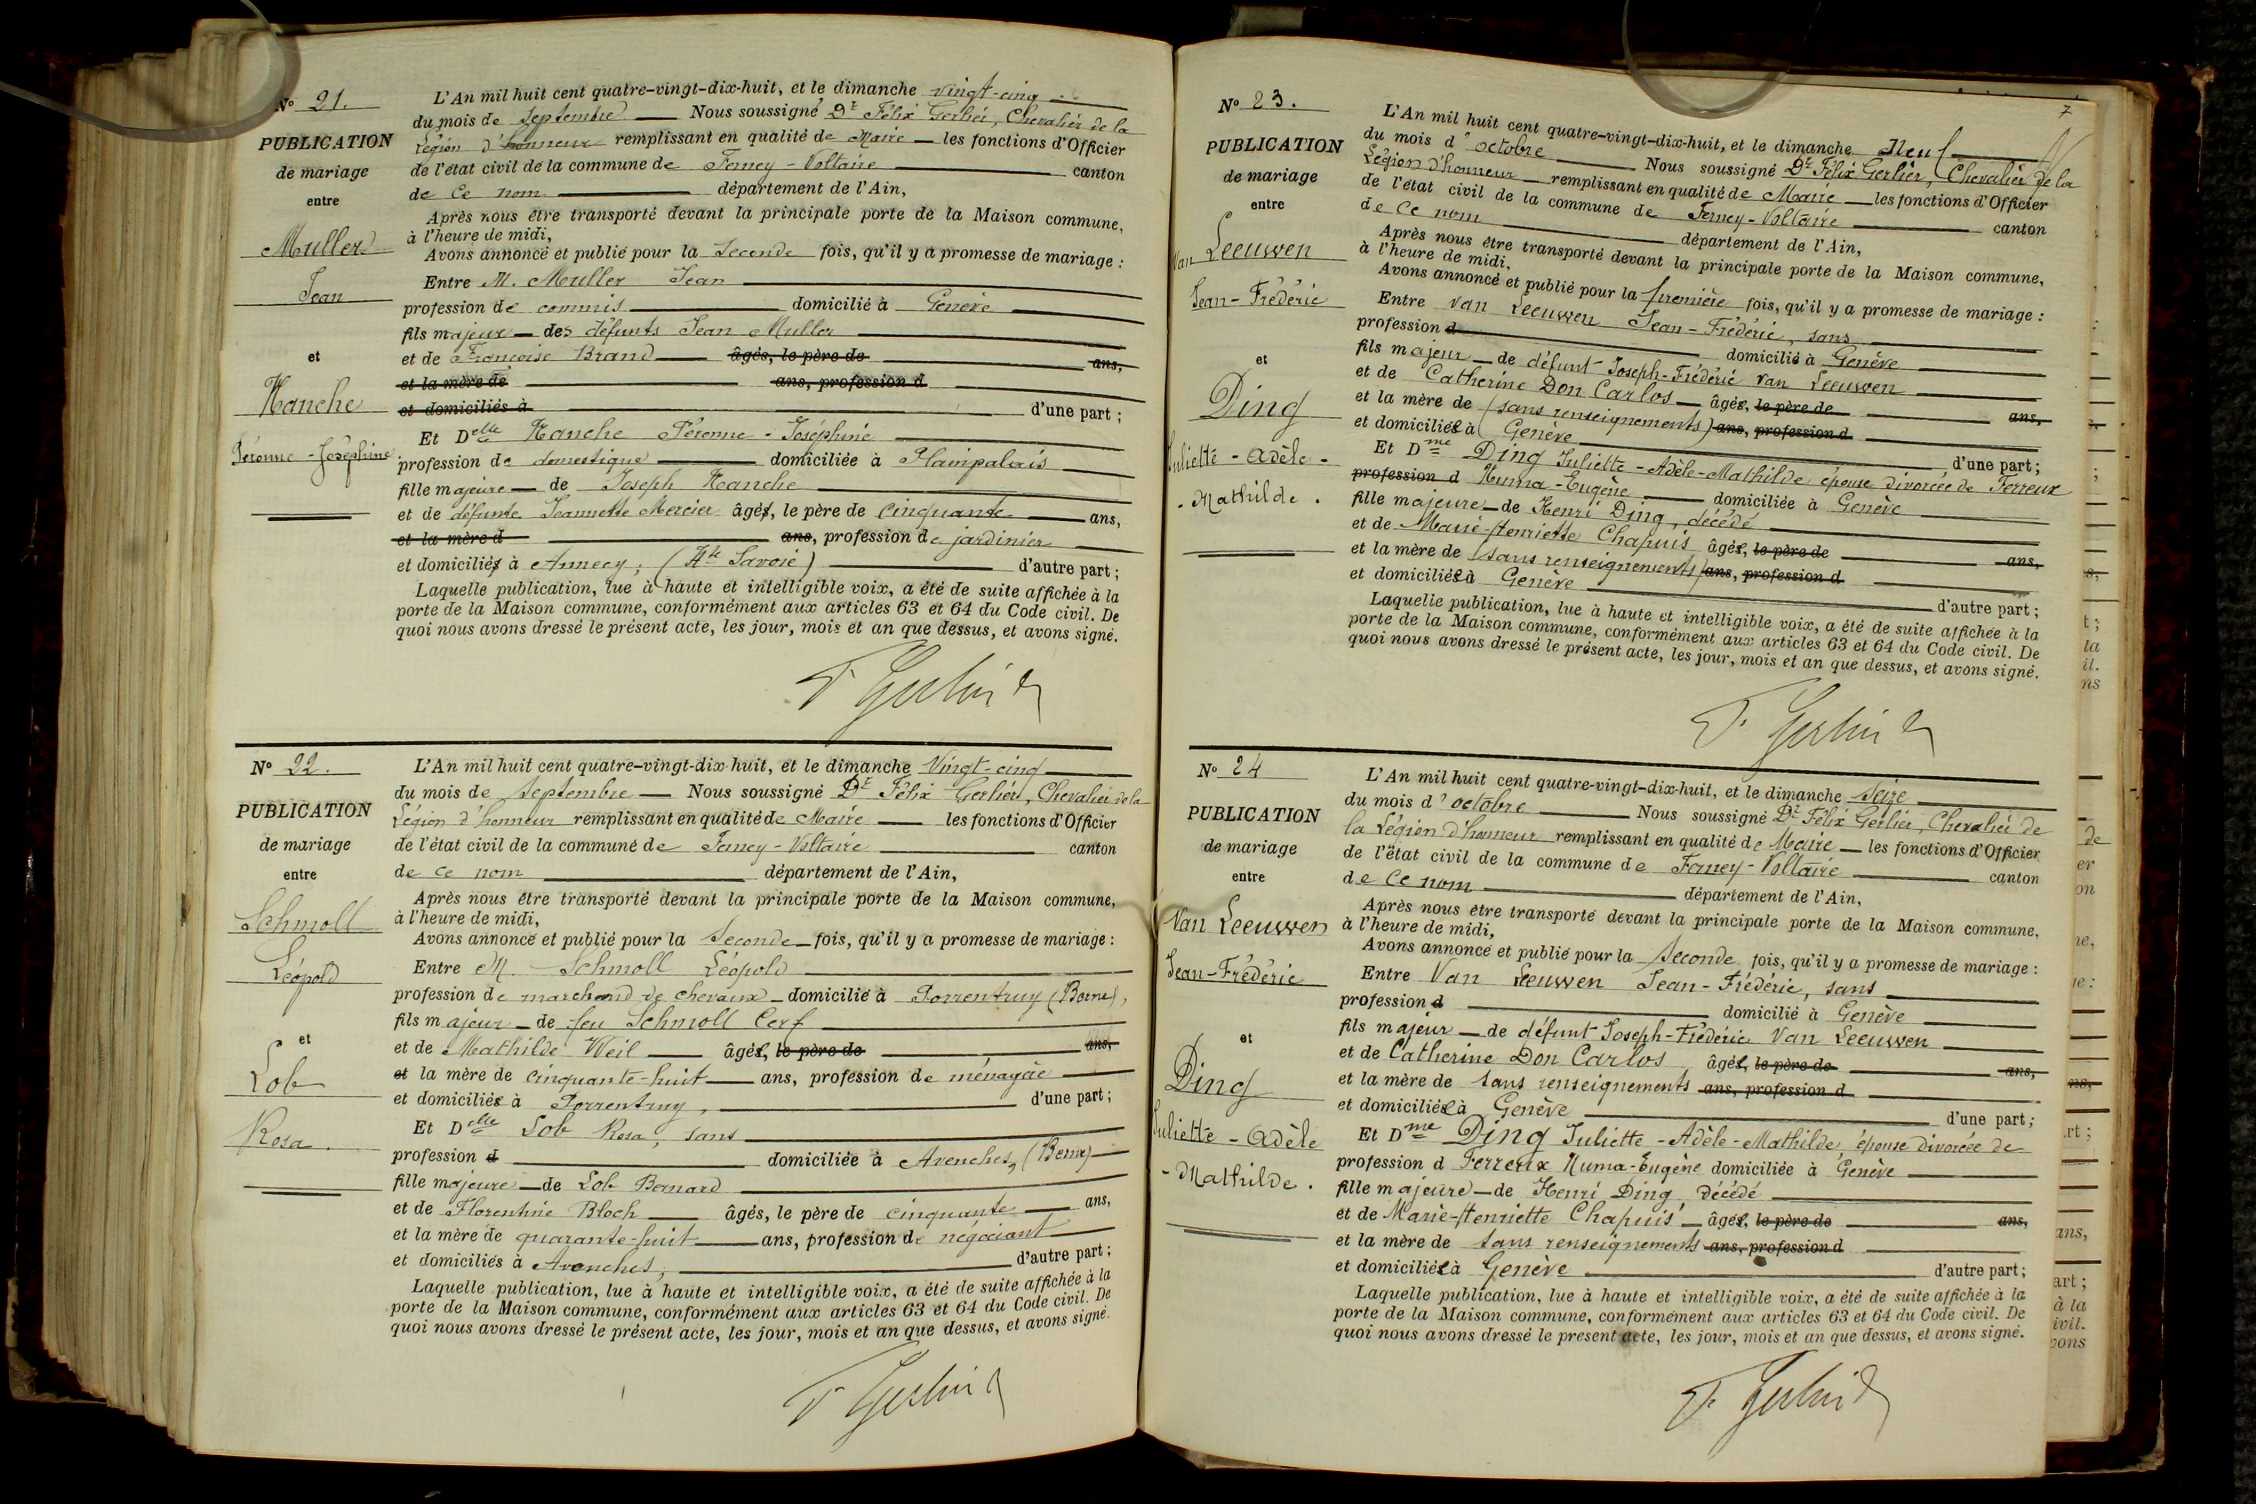 N° 21.
PUBLICATION
de mariage
entre
Muller
Jean
et
Hanche
Péronne - Joséphine
L'An mil huit cent quatre-vingt-dix-huit, et le dimanche vingt-cinq
du mois de septembre Nous soussigné Dr Félix Gerlier, Chevalier de la
Légion d'honneur remplissant en qualité de Maire les fonctions d'Officier
de l'état civil de la commune de Ferney-Voltaire canton
de ce nom département de l'Ain,
Après nous être transporté devant la principale porte de la Maison commune,
à l'heure de midi,
Avons annoncé et publié pour la seconde fois, qu'il y a promesse de mariage :
Entre M. Muller Jean
profession de commis domicilié à Genève
fils majeur des défunts Jean Muller
et de Françoise Brand âgés, le père de ans,
et la mère de ans, profession d
et domiciliés à d'une part ;
Et Delle Hanche Péronne-Joséphine
profession de domestique domiciliée à Plainpalais
fille majeure de Joseph Hanche
et de défunte Jeannette Mercier âgés, le père de cinquante ans,
et la mère d ans, profession de jardinier
et domiciliés à Annecy, (Hte Savoie) d'autre part ;
Laquelle publication, lue à haute et intelligible voix, a été de suite affichée à la
porte de la Maison commune, conformément aux articles 63 et 64 du Code civil. De
quoi nous avons dressé le présent acte, les jour, mois et an que dessus, et avons signé.
F Gerlier
N° 22.
PUBLICATION
de mariage
entre
Schmoll
Léopold
et
Lob
Rosa.
L'An mil huit cent quatre-vingt-dix-huit, et le dimanche Vingt-cinq
du mois de septembre Nous soussigné Dr Félix Gerlier, Chevalier de la
Légion d'honneur remplissant en qualité de Maire les fonctions d'Officier
de l'état civil de la commune de Ferney-Voltaire canton
de ce nom département de l'Ain,
Après nous être transporté devant la principale porte de la Maison commune,
à l'heure de midi,
Avons annoncé et publié pour la seconde fois, qu'il y a promesse de mariage :
Entre M. Schmoll Léopold
profession de marchand de chevaux domicilié à Porrentruy (Berne),
fils majeur de feu Schmoll Cerf
et de Mathilde Weil âgés, le père de ans,
et la mère de cinquante-huit ans, profession de ménagère
et domiciliés à Porrentruy, d'une part ;
Et Delle Lob Rosa, sans
profession d domiciliée à Avenches, (Berne)
fille majeure de Lob Bernard
et de Florentine Bloch âgés, le père de cinquante ans,
et la mère de quarante-huit ans, profession de négociant
et domiciliés à Avenches, d'autre part ;
Laquelle publication, lue à haute et intelligible voix, a été de suite affichée à la
porte de la Maison commune, conformément aux articles 63 et 64 du Code civil. De
quoi nous avons dressé le présent acte, les jour, mois et an que dessus, et avons signé.
F Gerlier
7
N° 23.
PUBLICATION
de mariage
entre
Van Leeuwen
Jean-Frédéric
et
Ding
Juliette - Adèle -
- Mathilde.
L'An mil huit cent quatre-vingt-dix-huit, et le dimanche Neuf
du mois d'octobre Nous soussigné Dr Félix Gerlier, Chevalier de la
Légion d'honneur remplissant en qualité de Maire les fonctions d'Officier
de l'état civil de la commune de Ferney-Voltaire canton
de ce nom département de l'Ain,
Après nous être transporté devant la principale porte de la Maison commune,
à l'heure de midi,
Avons annoncé et publié pour la première fois, qu'il y a promesse de mariage :
Entre Van Leeuwen Jean-Frédéric, sans
profession d domicilié à Genève
fils majeur de défunt Joseph-Frédéric Van Leeuwen
et de Catherine Don Carlos âgés, le père de ans,
et la mère de (sans renseignements) ans, profession d
et domiciliée à Genève d'une part ;
Et Dme Ding Juliette-Adèle-Mathilde épouse divorcée de Ferreux
profession d Numa-Eugène domiciliée à Genève
fille majeure de Henri Ding, décédé
et de Marie-Henriette Chapuis âgés, le père de ans,
et la mère de (sans renseignements) ans, profession d
et domiciliée à Genève d'autre part ;
Laquelle publication, lue à haute et intelligible voix, a été de suite affichée à la
porte de la Maison commune, conformément aux articles 63 et 64 du Code civil. De
quoi nous avons dressé le présent acte, les jour, mois et an que dessus, et avons signé.
F. Gerlier
N° 24
PUBLICATION
de mariage
entre
Van Leeuwen
Jean-Frédéric
et
Ding
Juliette - Adèle
- Mathilde.
L'An mil huit cent quatre-vingt-dix-huit, et le dimanche seize
du mois d'octobre Nous soussigné Dr Félix Gerlier, Chevalier de
la Légion d'honneur remplissant en qualité de Maire les fonctions d'Officier
de l'état civil de la commune de Ferney-Voltaire canton
de ce nom département de l'Ain,
Après nous être transporté devant la principale porte de la Maison commune,
à l'heure de midi,
Avons annoncé et publié pour la seconde fois, qu'il y a promesse de mariage :
Entre Van Leeuwen Jean-Frédéric, sans
profession d domicilié à Genève
fils majeur de défunt Joseph-Frédéric Van Leeuwen
et de Catherine Don Carlos âgés, le père de ans,
et la mère de sans renseignements ans, profession d
et domiciliée à Genève d'une part ;
Et Dme Ding Juliette-Adèle-Mathilde, épouse divorcée de
profession d Ferreux Numa-Eugène domiciliée à Genève
fille majeure de Henri Ding décédé
et de Marie-Henriette Chapuis âgés, le père de ans,
et la mère de sans renseignements ans, profession d
et domiciliée à Genève d'autre part ;
Laquelle publication, lue à haute et intelligible voix, a été de suite affichée à la
porte de la Maison commune, conformément aux articles 63 et 64 du Code civil. De
quoi nous avons dressé le présent acte, les jour, mois et an que dessus, et avons signé.
F. Gerlier